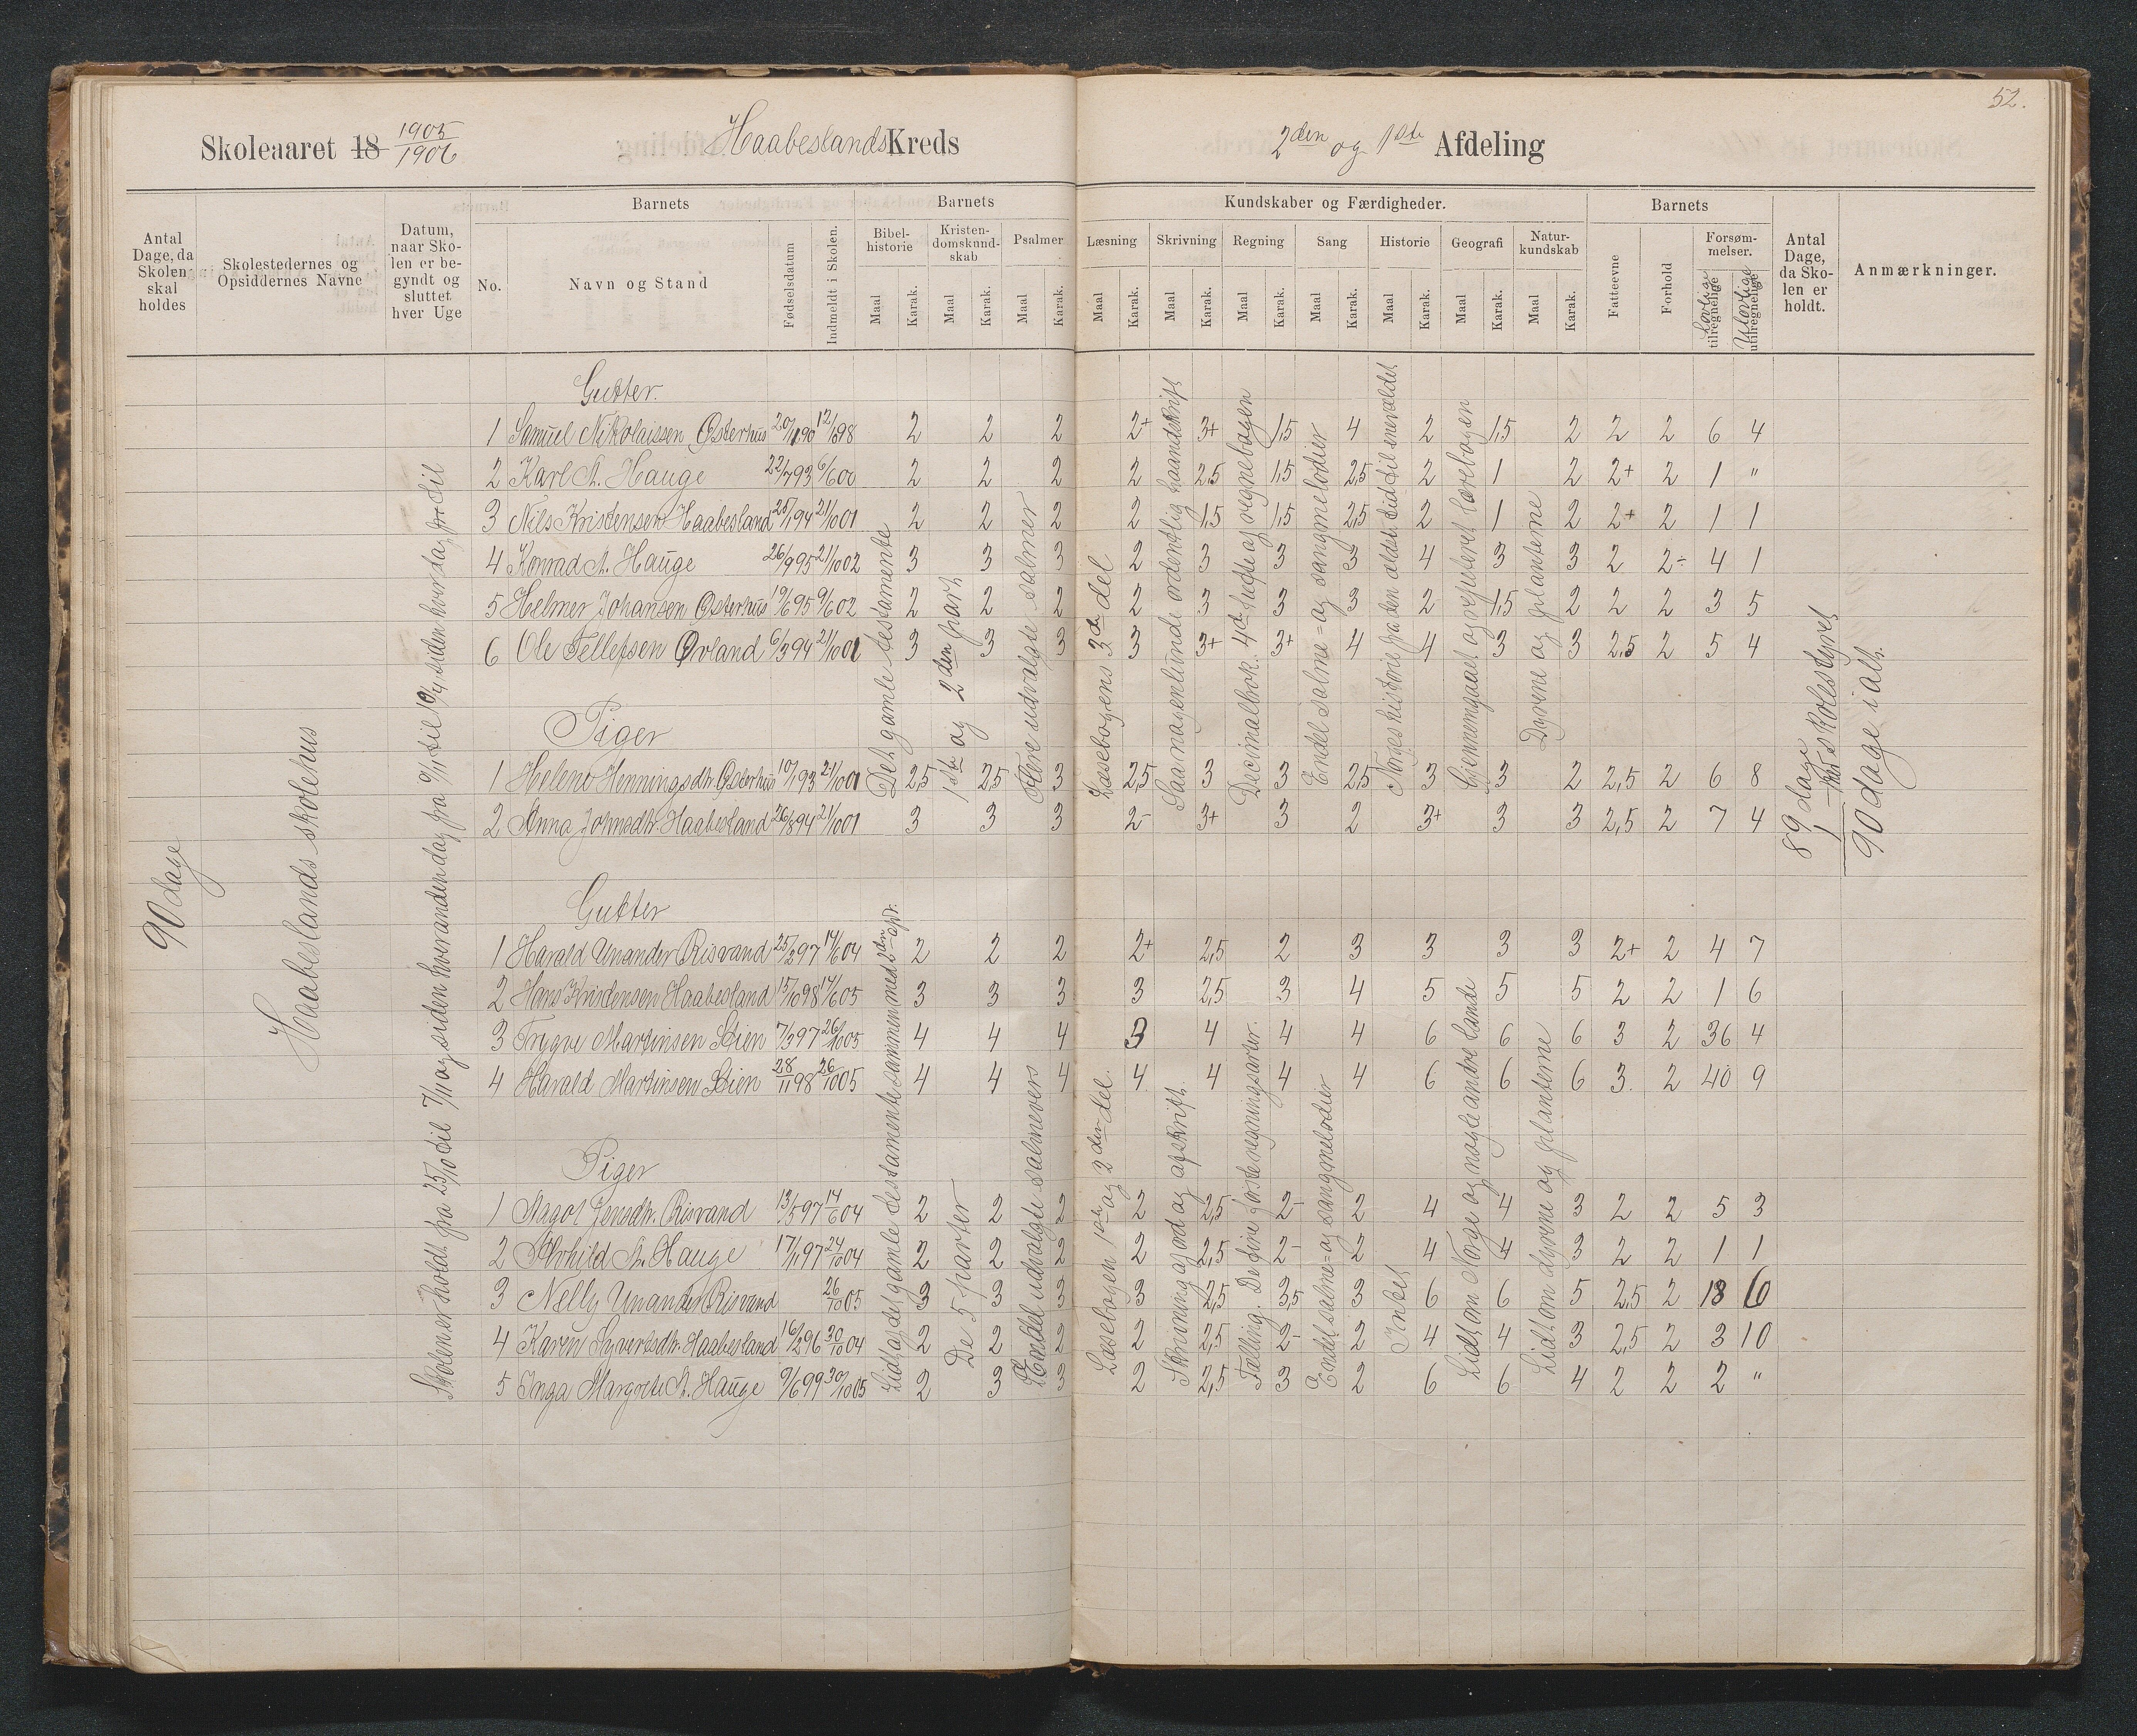 52.
Skoleaaret 18 1905/1906 Haabeslands Kreds 2den og 1ste Afdeling
Antal Dage, da Skolen skal holdes
Skolestedernes og Opsiddernes Navne
Datum, naar Skolen er begyndt og sluttet hver Uge
Barnets
No.
Navn og Stand
Fødselsdatum
Indmeldt i Skolen.
Barnets
Bibelhistorie Maal Karak.
Kristendomskundskab Maal Karak.
Psalmer Maal Karak.
Kundskaber og Færdigheder.
Læsning Maal Karak.
Skrivning Maal Karak.
Regning Maal Karak.
Sang Maal Karak.
Historie Maal Karak.
Geografi Maal Karak.
Naturkundskab Maal Karak.
Barnets
Fatteevne
Forhold
Forsømmelser.
Lovlige tilregnelige
Ulovlige utilregnelige
Antal Dage, da Skolen er holdt.
Anmærkninger.
90 dage
Haabeslands skolehus
Skolen er holdt fra 25/10 til 7/11 og siden hverandendag fra 9/1 til 10/4, siden hver dag
Gutter.
1 Samuel Nikolaissen Østerhus 20/1190 12/698 2 2 2 2+ 3+ 1,5 4 2 1,5 2 2 2 6 4
2 Karl A. Hauge 22/793 6/600 2 2 2 2 2,5 1,5 2,5 2 1 2 2+ 2 1 "
3 Nils Kristensen Haabesland 25/194 21/1001 2 2 2 2 1,5 1,5 2,5 2 1 2 2+ 2 1 1
4 Konrad A. Hauge 26/995 21/1002 3 3 3 2 3 3 3 4 3 3 2 2÷ 4 1
5 Helmer Johansen Østerhus 19/695 9/602 2 2 2 2 3 3 3 2 1,5 2 2 2 3 5
6 Ole Tellefsen Ørland 6/394 21/1001 3 3 3 3 3+ 3+ 4 4 3 3 2,5 2 5 4
Piger
1 Helene Henningsdtr. Østerhus 10/193 21/1001 2,5 2,5 3 2,5 3 3 2,5 3 3 2 2,5 2 6 8
2 Anna Johnsdtr. Haabesland 26/894 21/1001 3 3 3 2- 3+ 3 2 3+ 3 3 2,5 2 7 4
Det gamle testamente
1ste og 2den part
Flere udvalgte salmer
Læsebogens 3die del
Saa nogenlunde ordentlig haandskrift
Decimalbrøk. 4de hefte af regnebogen
Endel salme- og sangmelodier
Norges historie fra den ældste tid til enevældet
Gjennemgaaet og repeteret lærebogen
Dyrene og planterne
89 dage
1 — skolestyret
90 dage i alt.
Gutter
1 Harald Unander Risvand 25/297 14/604 2 2 2 2+ 2,5 2 3 3 3 3 2+ 2 4 7
2 Hans Kristensen Haabesland 15/1098 14/605 3 3 3 3 2,5 3 4 5 5 5 2 2 1 6
3 Trygve Martinsen Stien 7/397 26/1005 4 4 4 3 4 4 4 6 6 6 3 2 36 4
4 Harald Martinsen Stien 28/1198 26/1005 4 4 4 4 4 4 4 6 6 6 3. 2 40 9
Piger
1 Magot Jensdtr. Risvand 13/597 14/604 2 2 2 2 2,5 2- 2 4 4 3 2 2 5 3
2 Alvhild A. Hauge 17/1197 24/1004 2 2 2 2 2,5 2- 2 4 4 3 2 2 1 1
3 Nelly Unander Risvand 26/1005 3 3 3 3 2,5 3,5 3 6 6 5 2,5 2 18 6
4 Karen Syvertsdtr. Haabesland 16/296 30/1004 2 2 2 2 2,5 2- 2 4 4 3 2,5 2 3 10
5 Inga Margrete A. Hauge 9/699 30/1005 2 3 3 2 2,5 3 2 6 6 4 2 2 2 "
Lidt af det gamle testamente sammen med 2den opdr.
De 5 parter
Endel udvalgte salmevers
Læsebogen 1ste og 2den del.
Skrivning af ord og afskrift.
Tælling. De fire første regningsarter.
Endel salme- og sangmelodier
Intet
Lidt om Norge og nogle andre lande
Lidt om dyrene og planterne